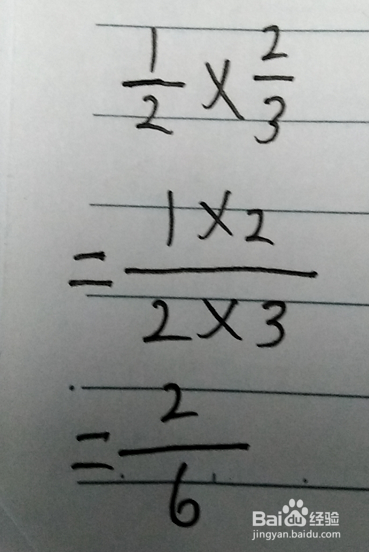 1/2 × 2/3
= 1×2 / 2×3
= 2/6
Bai 经验
jingyan.baidu.com